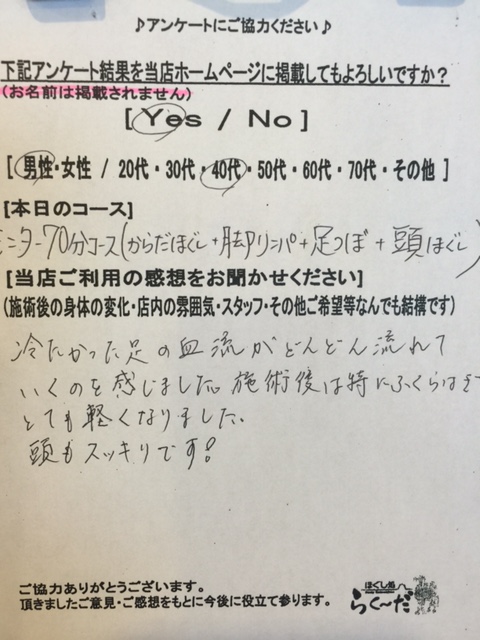 ♪アンケートにご協力ください♪
下記アンケート結果を当店ホームページに掲載してもよろしいですか?
(お名前は掲載されません)
[ Yes / No ]
[ 男性・女性 / 20代・30代・40代・50代・60代・70代・その他 ]
[本日のコース]
ニター70分コース(からだほぐし+脚リンパ+足つぼ+頭ほぐし)
[当店ご利用の感想をお聞かせください]
(施術後の身体の変化・店内の雰囲気・スタッフ・その他ご希望等なんでも結構です)
冷たかった足の血流がどんどん流れて
いくのを感じました。施術後は特にふくらはぎ
とても軽くなりました。
頭もスッキリです!
ご協力ありがとうございます。
頂きましたご意見・ご感想をもとに今後に役立て参ります。
ほぐし処
らく~だ